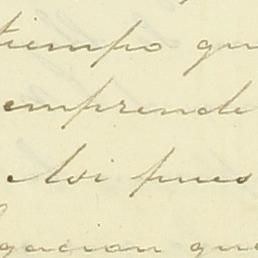 tiempo qu
emprende
Noi pues
gacion que